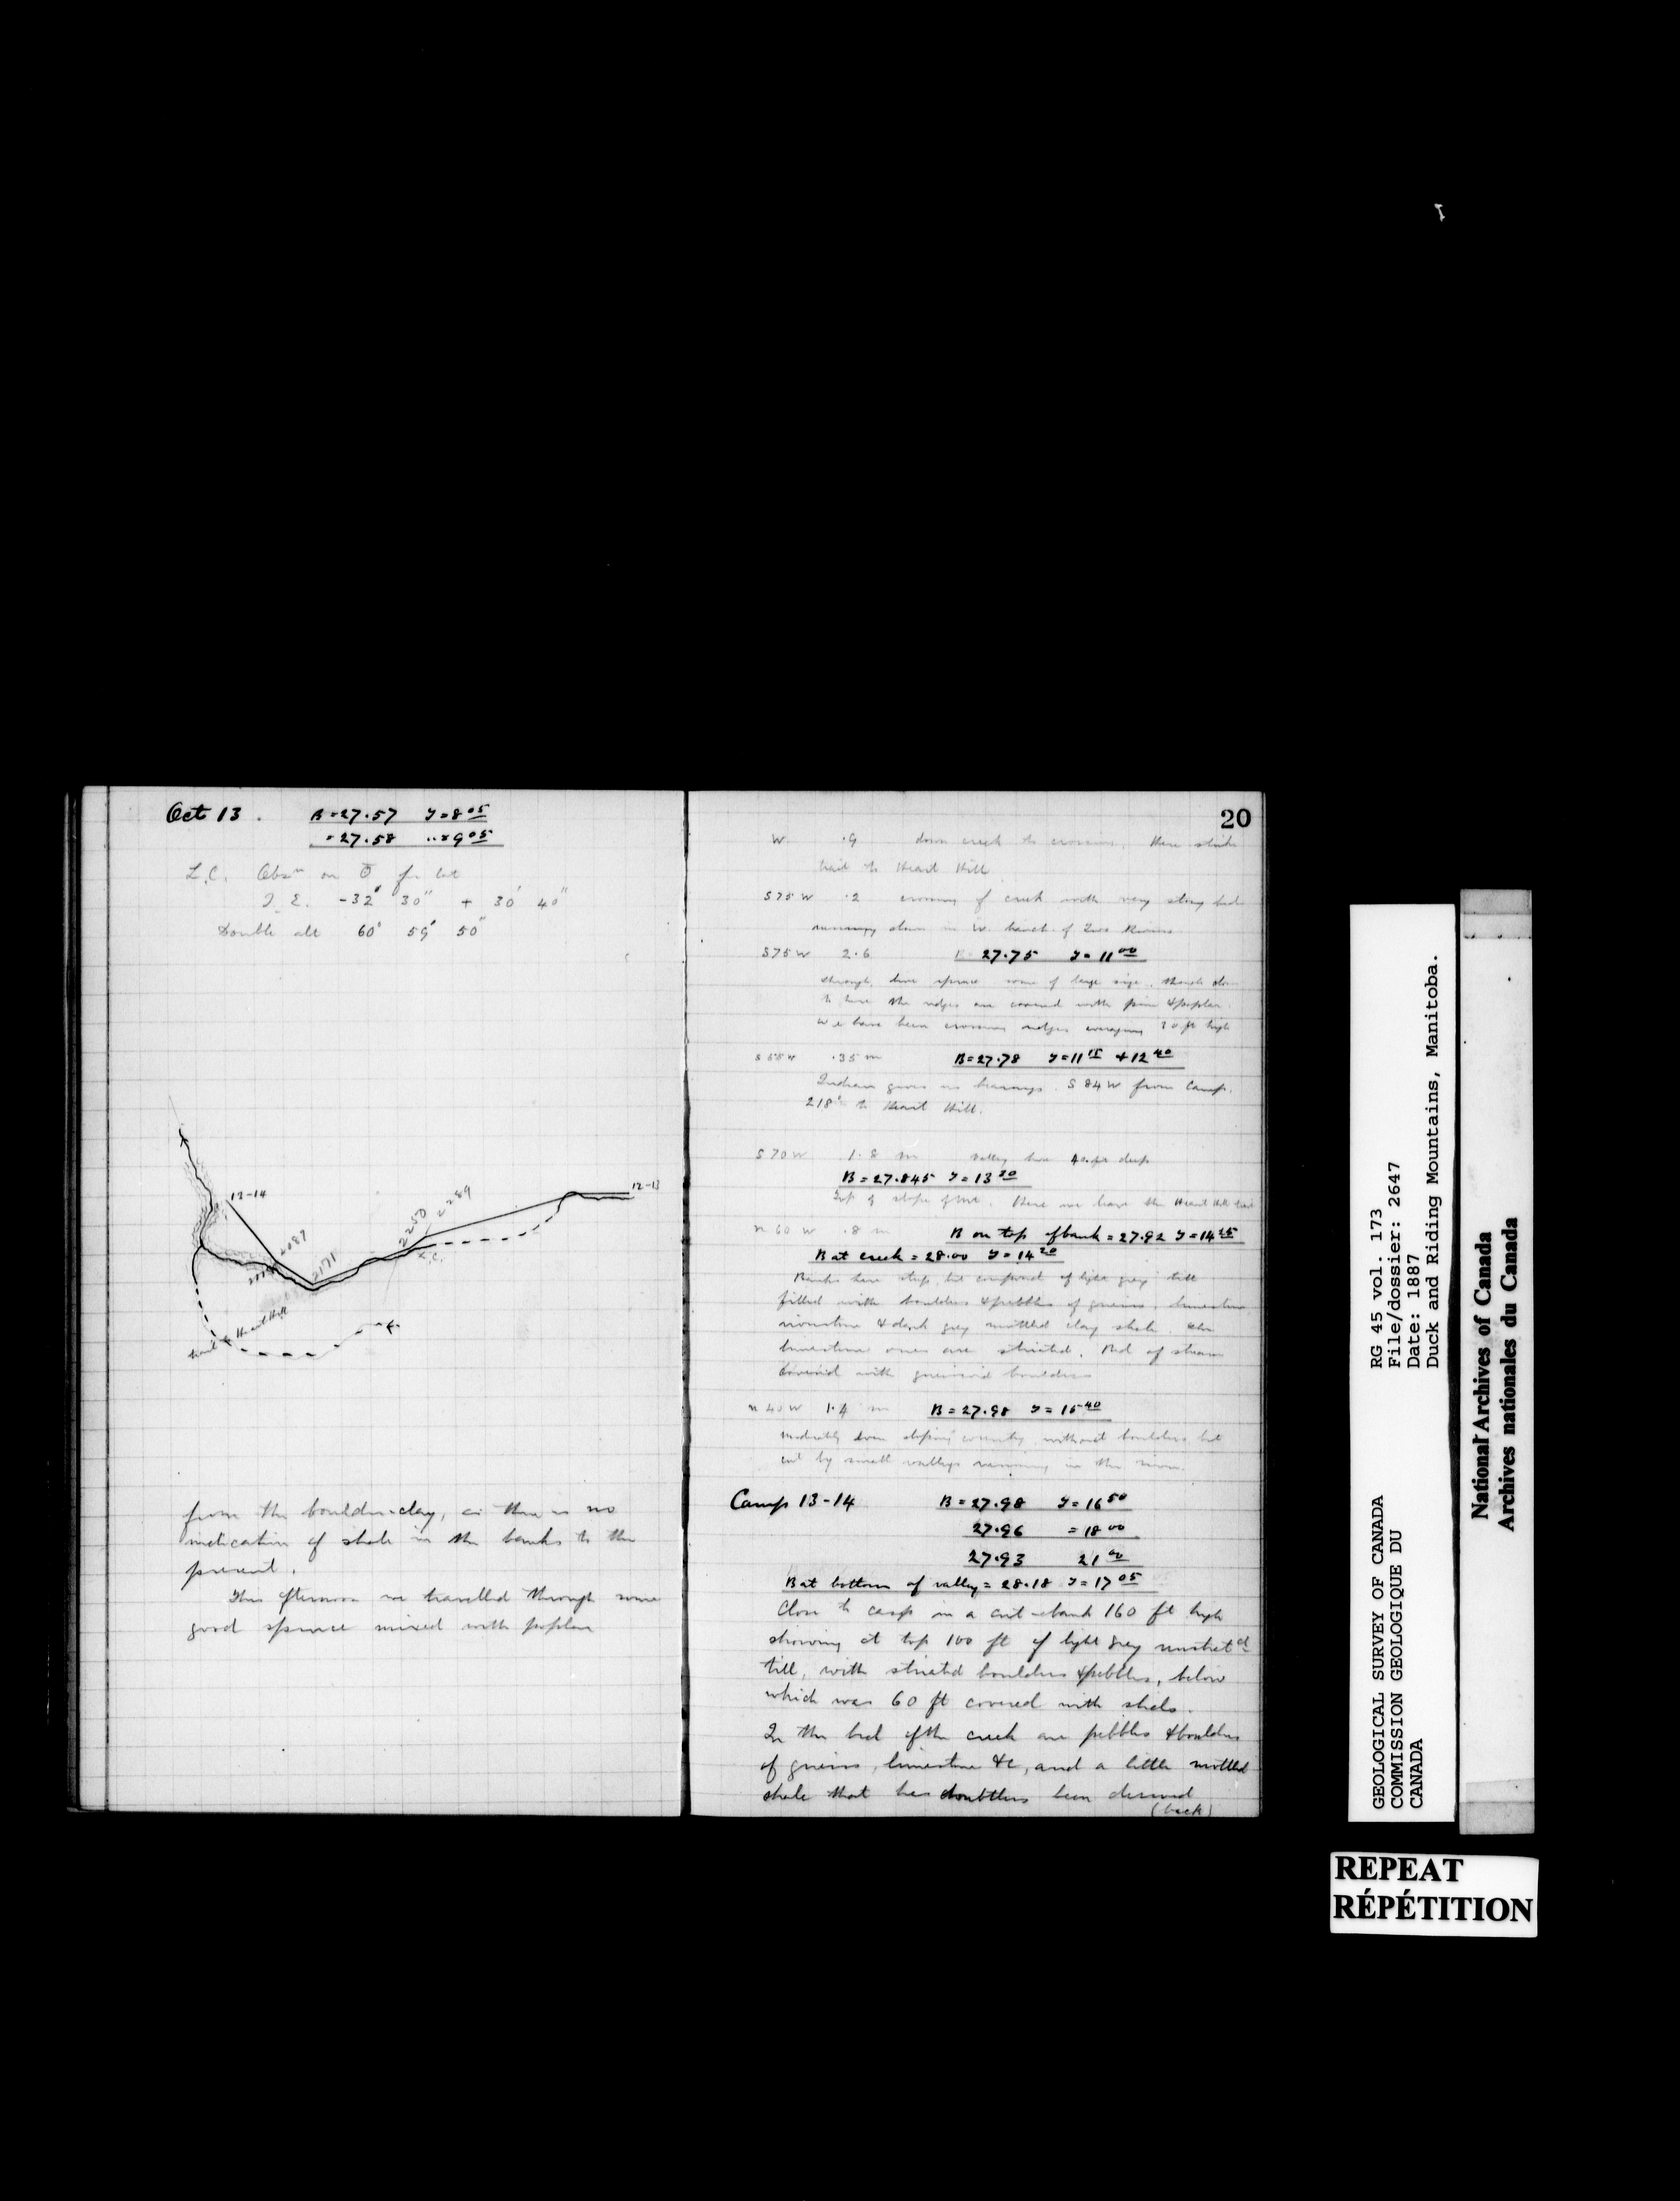 Oct 13. B=27.57 T=8 05
=27.58 ..=9 05
L.C. Obsn on for lat
I.E. -32' 30" + 30' 40"
Double alt 60° 59' 50"
12-14
2087
2171
2250
2289
L.C.
12-13
trail to Heart Hill
from the boulder-clay, as there is no
indication of shale in the banks to the
present.
This afternoon we travelled through some
good spruce mixed with poplar
20
W. .9 down creek to crossing. Here strike
trail to Heart Hill
S75W .2 crossing of creek with very stony bed
running down in W. branch of Two Rivers
S75W 2.6 B=27.75 T=11 00
through fine spruce some of large size, though close
to here the ridges are covered with pine & poplar.
We have been crossing ridges averaging 20 ft high
S55W .35 m B=27.78 T=11 15 +12 40
Indian gives us bearings. S84W from Camp.
218° to Heart Hill.
S70W 1.8 m Valley here 40 ft deep
B=27.845 T=13 20
Top of slope 5 ft. Here we leave the Heart Hill trail
N60W .8 m B on top of bank = 27.92 T=14 25
B at creek = 28.00 T=14 20
Banks here steep, but composed of light grey till
filled with boulders & pebbles of gneiss, limestone
ironstone & dark grey mottled clay shale. The
limestone ones are striated. Bed of stream
covered with gneissoid boulders
N40W 1.4 m B=27.98 T=15 40
Moderately even sloping country, without boulders but
cut by small valleys running in the river.
Camp 13-14 B=27.98 T=16 50
27.96 =18 00
27.93 21 00
B at bottom of valley = 28.18 T=17 05
Close to camp is a cut-bank 160 ft high
showing at top 100 ft of light grey unstratd
till, with striated boulders & pebbles, below
which was 60 ft covered with slide.
In the bed of the creek are pebbles & boulders
of gneiss, limestone &c, and a little mottled
shale that has doubtless been derived
(back)
GEOLOGICAL SURVEY OF CANADA
COMMISSION GEOLOGIQUE DU
CANADA
RG 45 vol. 173
File/dossier: 2647
Date: 1887
Duck and Riding Mountains, Manitoba.
National Archives of Canada
Archives nationales du Canada
REPEAT
RÉPÉTITION